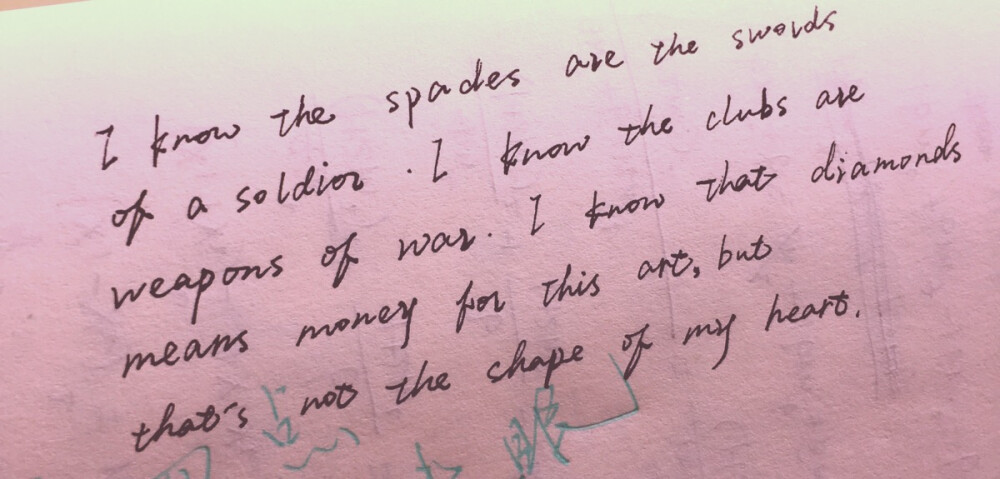 I know the spades are the swords
of a soldior. I know the clubs are
weapons of war. I know that diamonds
means money for this art, but
that's not the shape of my heart.
眼